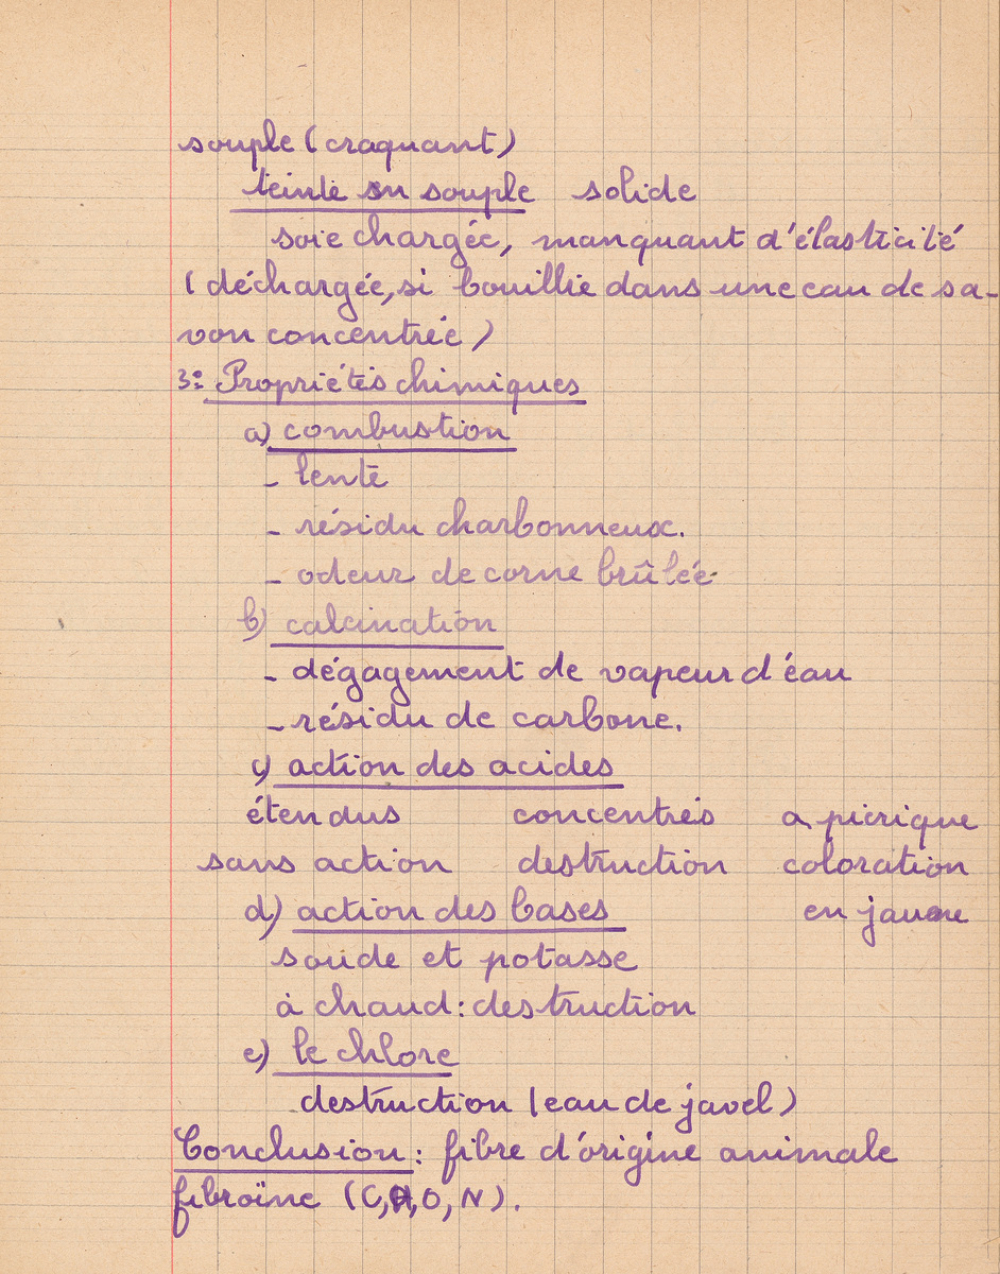 souple (craquant)
teinte en souple solide
soie chargée, manquant d'élasticité
(déchargée, si bouillie dans une eau de sa-
von concentrée)
3: Propriétés chimiques
a) combustion
- lente
- résidu charbonneux.
- odeur de corne brûlée.
b) calcination
- dégagement de vapeur d'éau
- résidu de carbone.
c) action des acides
étendus concentrés a picrique
sans action destruction coloration
d) action des bases en jaune
soude et potasse
à chaud: destruction
e) le chlore
destruction (eau de javel)
Conclusion: fibre d'origine animale
fibroïne (C,H,O,N).